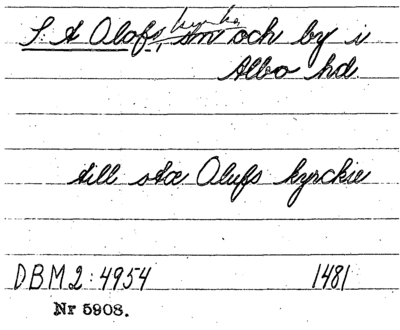 kyrka
S:t Olofs, sn och by i
Albo hd
till stæ Olufs kyrckie
DBM2:4954 1481
Nr 5908.